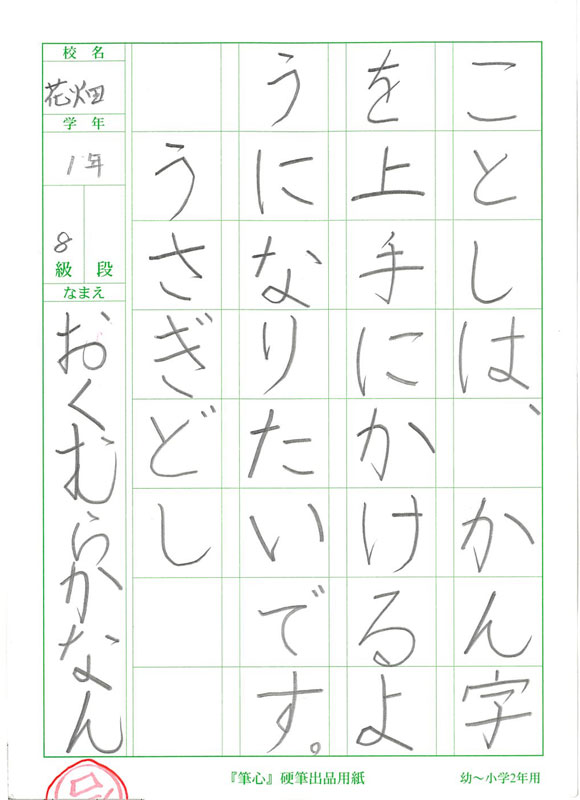 ことしは、かん字
を上手にかけるよ
うになりたいです。
うさぎどし
校名
花畑
学年
1年
8
級
段
なまえ
おくむらかなん
『筆心』硬筆出品用紙
幼〜小学2年用